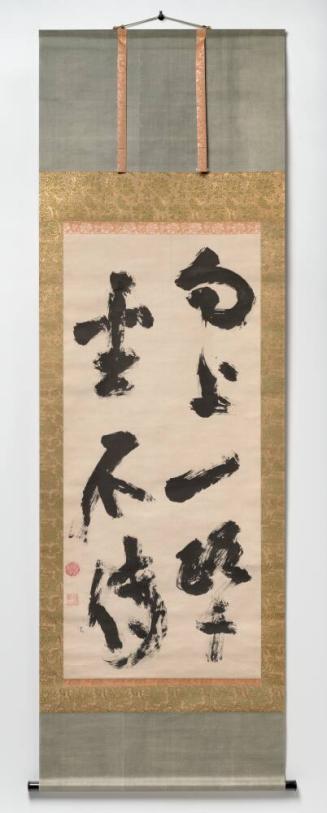 向上一路千
聖不傳